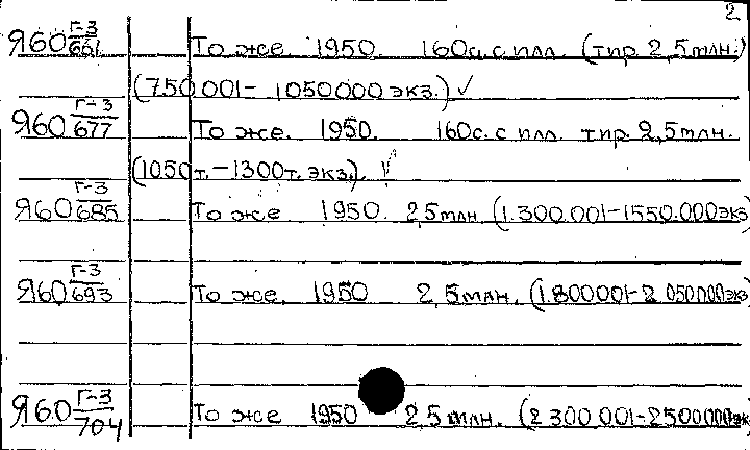 2
Я60 Г-3/661 То же 1950. 160с. с илл. (тир. 2,5 млн.)
(750 001 - 1050000 экз.) ✓
Я60 Г-3/677 То же. 1950. 160с. с илл. тир. 2,5 млн.
(1050 т. - 1300 т. экз.).
Я60 Г-3/685 То же 1950. 2,5 млн (1.300.001 - 1550.000 экз
Я60 Г-3/693 То же. 1950 2,5 млн. (1800001 - 2 050000 экз
Я60 Г-3/704 То же 1950 2,5 млн. (2 300 001 - 2500000 эк